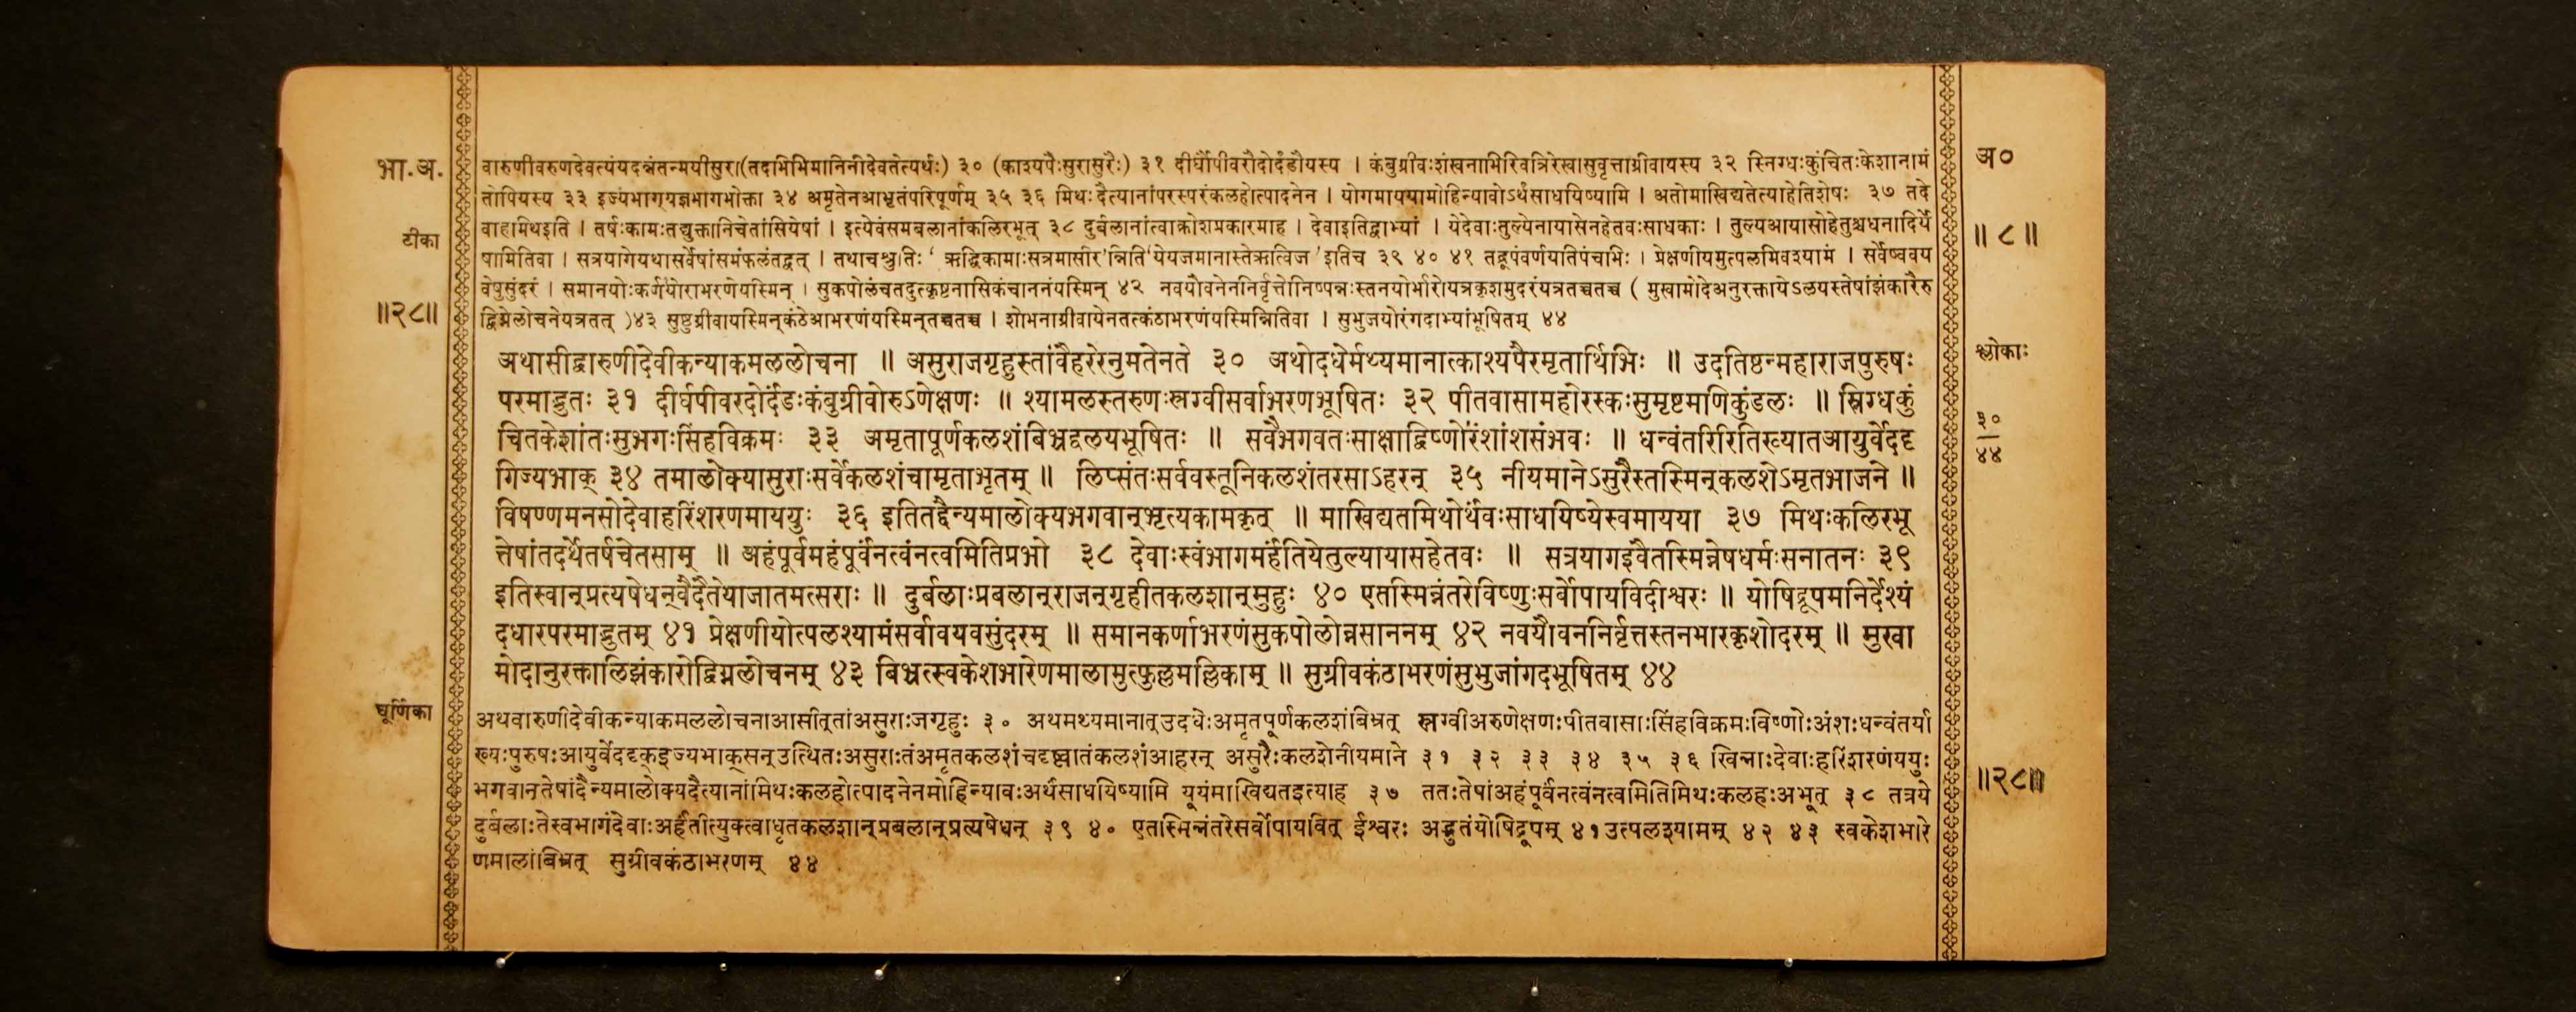 भा.अ.
वारुणीवरुणदेवत्यंयदन्नंतन्मयीसुरा(तदाभिमानिनीदेवतेत्यर्थः) ३० (काश्यपैःसुरासुरैः) ३१ दीर्घौपीवरौदोर्दंडौयस्य । कंबुग्रीवःशंखनाभिरिवत्रिरेखासुवृत्ताग्रीवायस्य ३२ स्निग्धःकुंचितःकेशानामं
अ०
तोपियस्य ३३ इज्यंभाग्यज्ञभागभोक्ता ३४ अमृतेनआभृतंपरिपूर्णम् ३५ ३६ मिथःदैत्यानांपरस्परंकलहोत्पादनेन । योगमाययामोहिन्यावोऽर्थंसाधयिष्यामि । अतोमाखिद्यतेत्याहेतिशेषः ३७ तदे
टीका
वाहमिथइति । तर्षःकामःतद्युक्तानिचेतांसियेषां । इत्येवंसमबलानांकलिरभूत् ३८ दुर्बलानांत्वाक्रोशप्रकारमाह । देवाइतिद्वाभ्यां । येदेवाःतुल्येनायासेनहेतवःसाधकाः । तुल्यआयासोहेतुश्चधनादिर्ये
॥ ८ ॥
षामितिवा । सत्रयागेयथासर्वेषांसमंफलंतद्वत् । तथाचश्रुतिः ‘ ऋद्धिकामाःसत्रमासीर’न्निति‘येयजमानास्तेऋत्विज ’इतिच ३९ ४० ४१ तद्रूपंवर्णयतिपंचभिः । प्रेक्षणीयमुत्पलमिवश्यामं । सर्वेष्ववय
वेषुसुंदरं । समानयोःकर्णयोराभरणेयस्मिन् । सुकपोलंचतदुत्कृष्टनासिकंचाननंयस्मिन् ४२ नवयौवनेननिर्वृत्तोनिष्पन्नःस्तनयोर्भारोयत्रकृशमुदरंयत्रतच्चतच्च ( मुखामोदेअनुरक्तायेऽलयस्तेषांझंकारैरु
॥२८॥
द्विग्नेलोचनेयत्रतत् )४३ सुष्ठुग्रीवायस्मिन्कंठेआभरणंयस्मिन्तच्चतच्च । शोभनाग्रीवायेनतत्कंठाभरणंयस्मिन्नितिवा । सुभुजयोरंगदाभ्यांभूषितम् ४४
अथासीद्वारुणीदेवीकन्याकमललोचना ॥ असुराजगृहुस्तांवैहरेरनुमतेनते ३० अथोदधेर्मथ्यमानात्काश्यपैरमृतार्थिभिः ॥ उदतिष्ठन्महाराजपुरुषः
श्लोकाः
परमाद्भुतः ३१ दीर्घपीवरदोर्दंडःकंबुग्रीवोरुऽणेक्षणः ॥ श्यामलस्तरुणःस्रग्वीसर्वाभरणभूषितः ३२ पीतवासामहोरस्कःसुमृष्टमणिकुंडलः ॥ स्निग्धकुं
३०
४४
चितकेशांतःसुभगःसिंहविक्रमः ३३ अमृतापूर्णकलशंबिभ्रद्वलयभूषितः ॥ सवैभगवतःसाक्षाद्विष्णोरंशांशसंभवः ॥ धन्वंतरिरितिख्यातआयुर्वेददृ
गिज्यभाक् ३४ तमालोक्यासुराःसर्वेकलशंचामृताभृतम् ॥ लिप्संतःसर्ववस्तूनिकलशंतरसाऽहरन् ३५ नीयमानेऽसुरैस्तस्मिन्कलशेऽमृतभाजने ॥
विषण्णमनसोदेवाहरिंशरणमाययुः ३६ इतितद्दैन्यमालोक्यभगवान्भृत्यकामकृत् ॥ माखिद्यतमिथोर्थंवःसाधयिष्येस्वमायया ३७ मिथःकलिरभू
त्तेषांतदर्थेतर्षचेतसाम् ॥ अहंपूर्वमहंपूर्वंनत्वंनत्वमितिप्रभो ३८ देवाःस्वंभागमर्हंतियेतुल्यायासहेतवः ॥ सत्रयागइवैतस्मिन्नेषधर्मःसनातनः ३९
इतिस्वान्प्रत्यषेधन्वैदैतेयाजातमत्सराः ॥ दुर्बलाःप्रबलान्राजन्गृहीतकलशान्मुहुः ४० एतस्मिन्नंतरेविष्णुःसर्वोपायविदीश्वरः ॥ योषिद्रूपमनिर्देश्यं
दधारपरमाद्भुतम् ४१ प्रेक्षणीयोत्पलश्यामंसर्वावयवसुंदरम् ॥ समानकर्णाभरणंसुकपोलोन्नसाननम् ४२ नवयौवननिर्वृत्तस्तनभारकृशोदरम् ॥ मुखा
मोदानुरक्तालिझंकारोद्विग्नलोचनम् ४३ बिभ्रत्स्वकेशभारेणमालामुत्फुल्लमल्लिकाम् ॥ सुग्रीवकंठाभरणंसुभुजांगदभूषितम् ४४
चूर्णिका
अथवारुणीदेवीकन्याकमललोचनाआसीत्तांअसुराःजगृहुः ३० अथमथ्यमानात्उदधेःअमृतपूर्णकलशंबिभ्रत् स्रग्वीअरुणेक्षणःपीतवासाःसिंहविक्रमःविष्णोःअंशःधन्वंतर्या
ख्यःपुरुषःआयुर्वेददृक्इज्यभाक्सन्उत्थितःअसुराःतंअमृतकलशंचदृष्ट्वातंकलशंआहरन् असुरैःकलशेनीयमाने ३१ ३२ ३३ ३४ ३५ ३६ खिन्नाःदेवाःहरिंशरणंययुः
॥२८॥
भगवान्तेषांदैन्यमालोक्यदैत्यानांमिथःकलहोत्पादनेनमोहिन्यावःअर्थंसाधयिष्यामि यूयंमाखिद्यतइत्याह ३७ ततःतेषांअहंपूर्वंनत्वंनत्वमितिमिथःकलहःअभूत् ३८ तत्रये
दुर्बलाःतेस्वभागंदेवाःअर्हंतीत्युक्त्वाधृतकलशान्प्रबलान्प्रत्यषेधन् ३९ ४० एतस्मिन्नंतरेसर्वोपायवित् ईश्वरः अद्भुतंयोषिद्रूपम् ४१उत्पलश्यामम् ४२ ४३ स्वकेशभारे
णमालांबिभ्रत् सुग्रीवकंठाभरणम् ४४